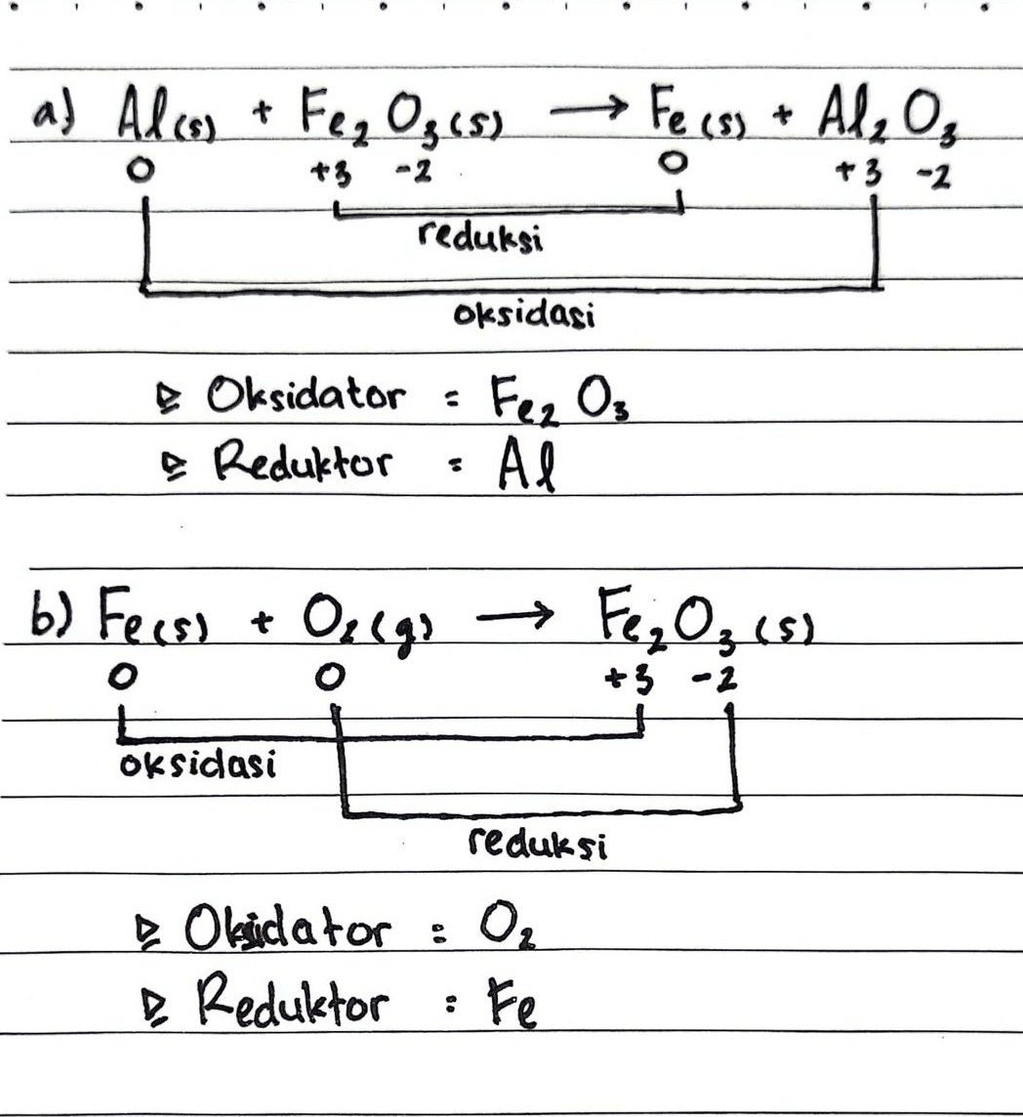 a) Al(s) + Fe₂O₃(s) → Fe(s) + Al₂O₃
0 +3 -2 0 +3 -2
reduksi
oksidasi
⊵ Oksidator = Fe₂O₃
⊵ Reduktor = Al
b) Fe(s) + O₂(g) → Fe₂O₃(s)
0 0 +3 -2
oksidasi
reduksi
⊵ Oksidator : O₂
⊵ Reduktor : Fe